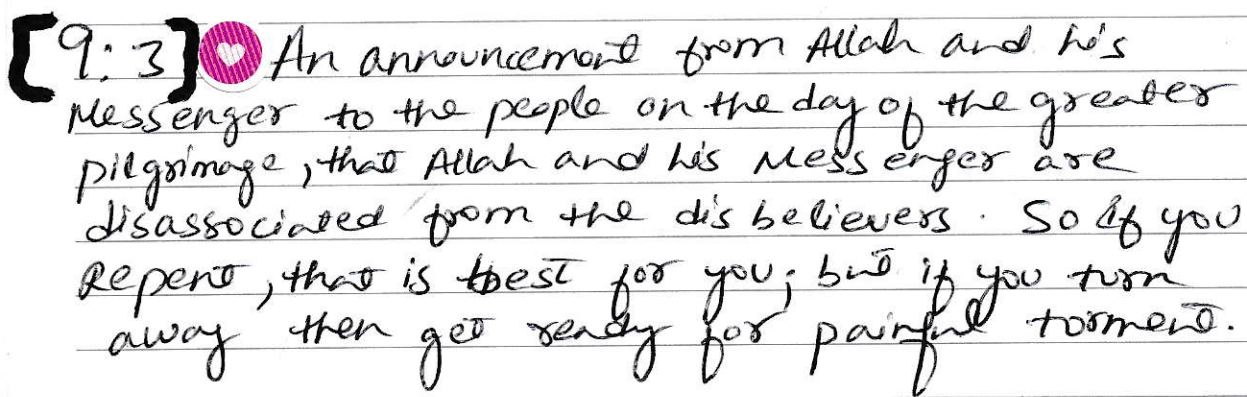 [9:3] An announcement from Allah and his
Messenger to the people on the day of the greater
pilgrimage, that Allah and his Messenger are
disassociated from the disbelievers. So if you
Repent, that is best for you; but if you turn
away then get ready for painful torment.